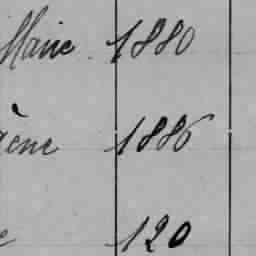 Marie 1880
ène 1886
e 120